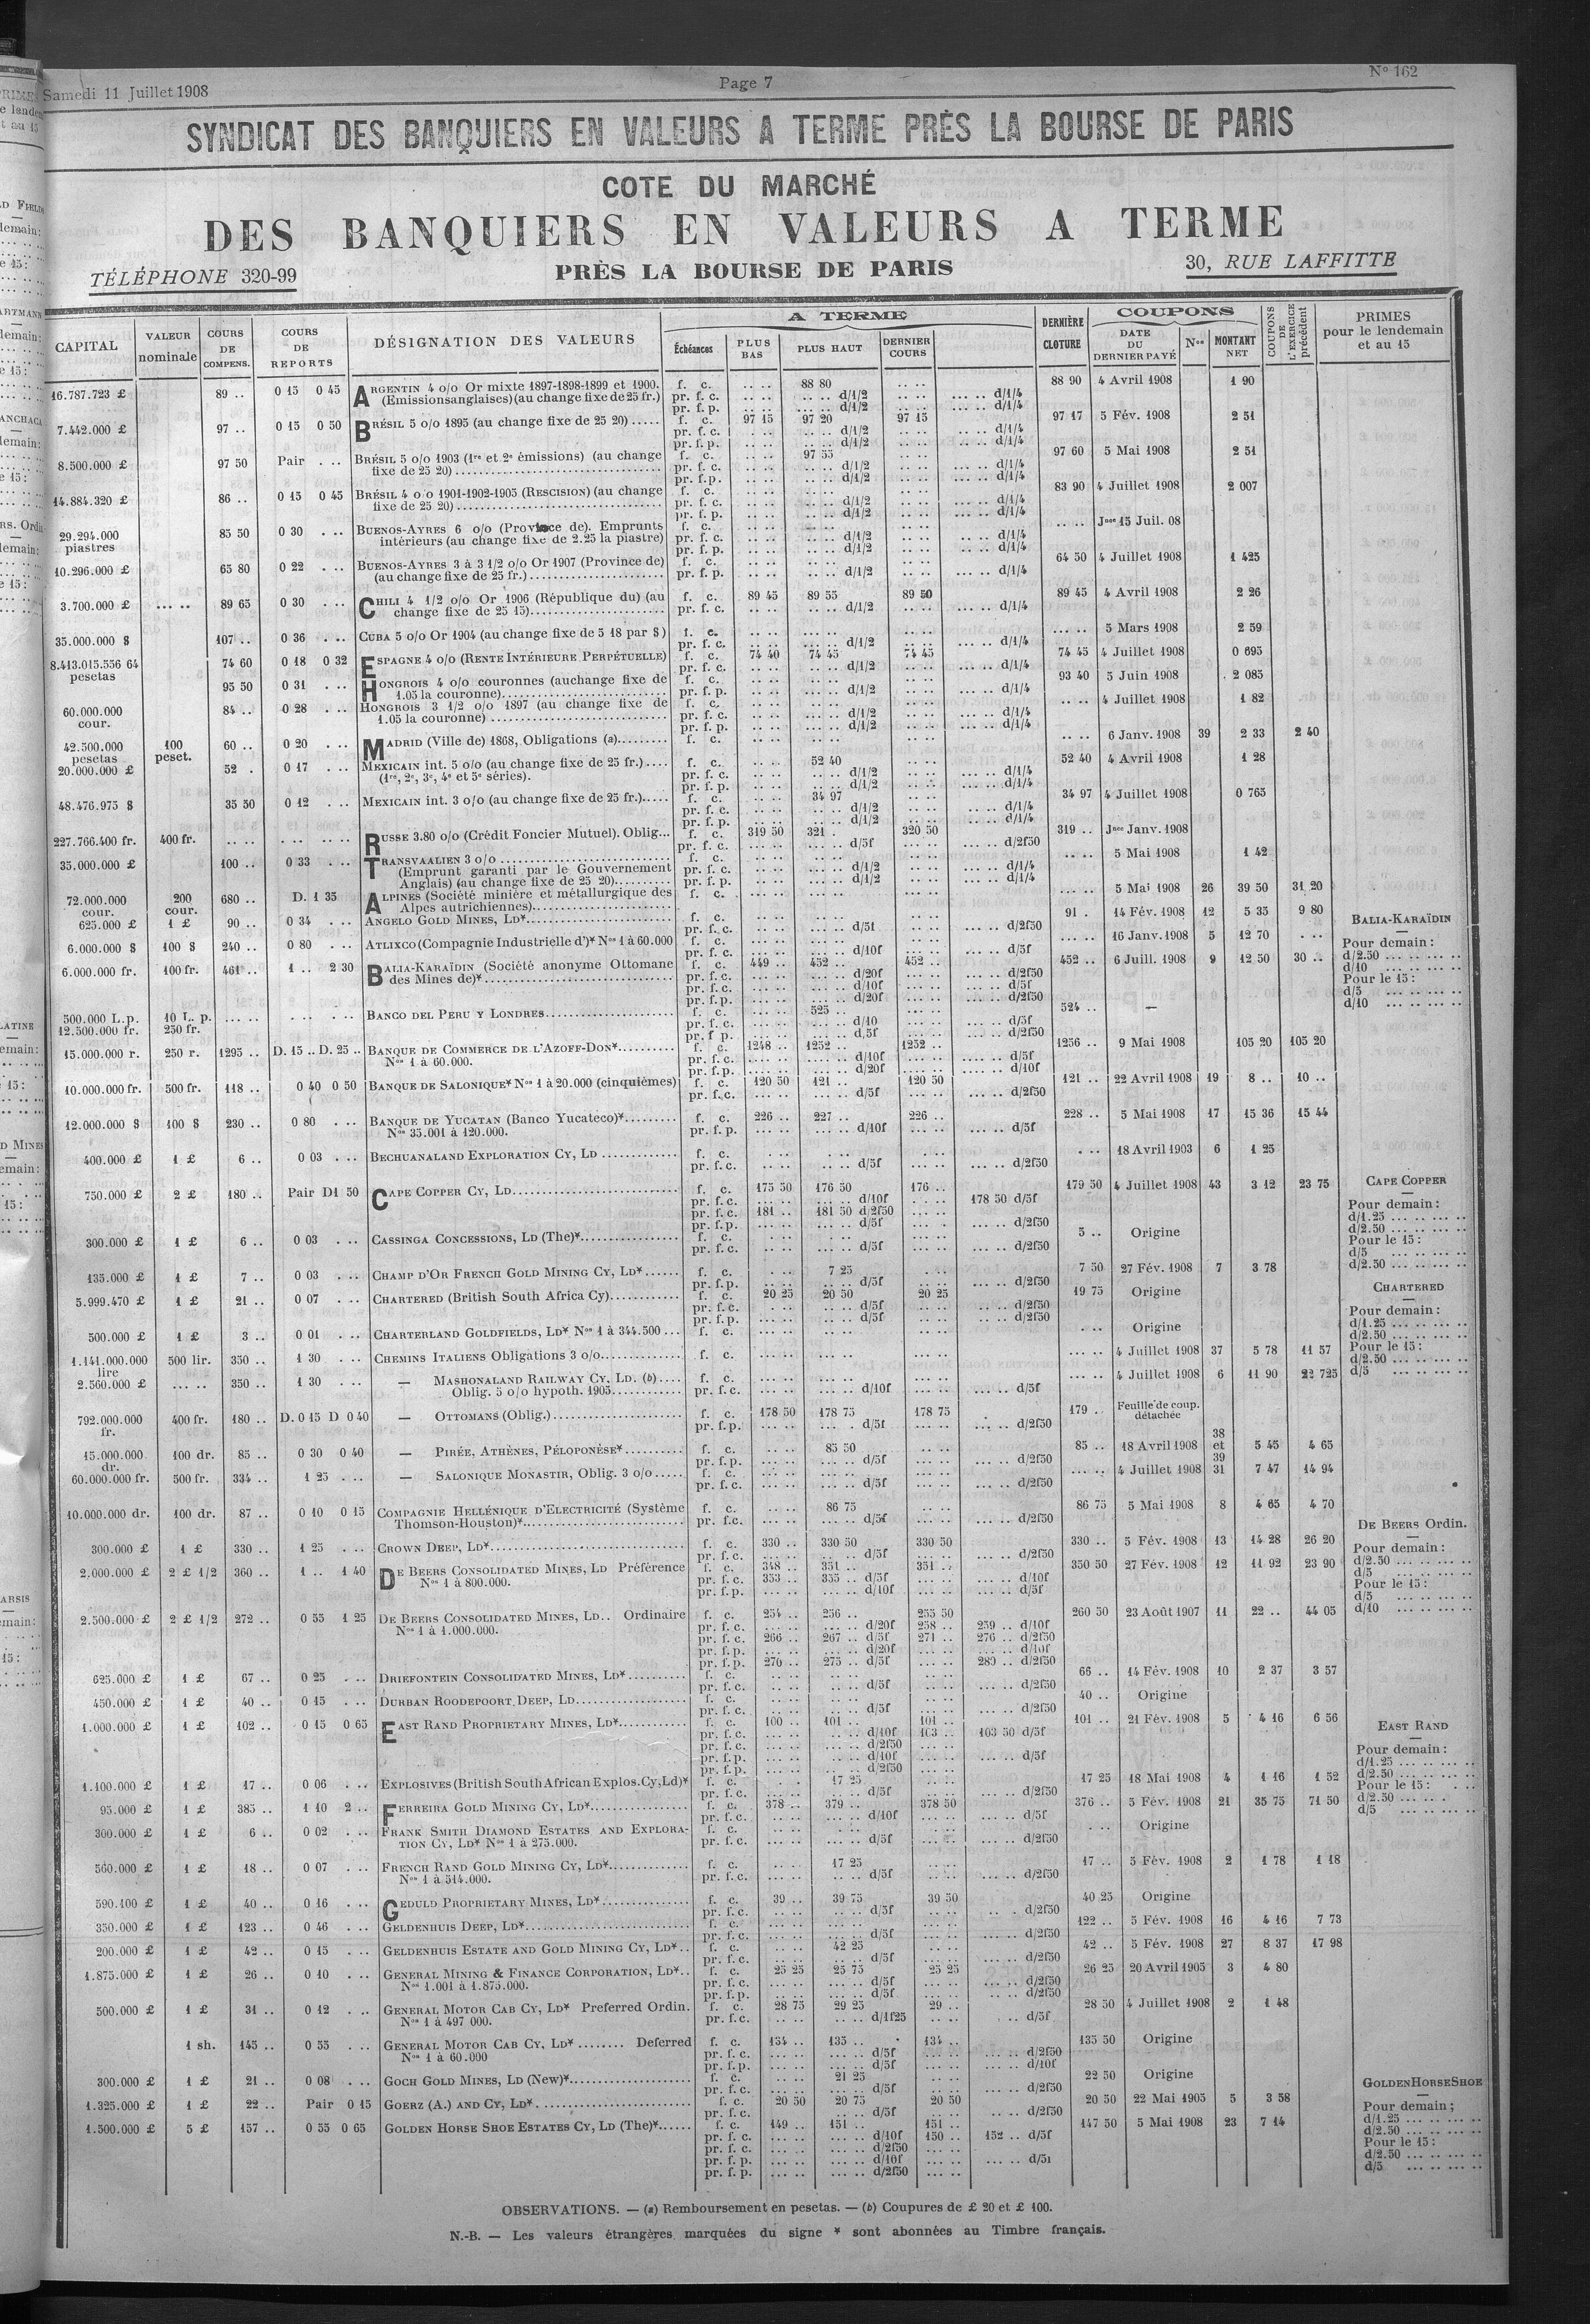 Samedi 11 Juillet 1908
Page 7
N° 162
SYNDICAT DES BANQUIERS EN VALEURS A TERME PRÈS LA BOURSE DE PARIS
COTE DU MARCHÉ
DES BANQUIERS EN VALEURS A TERME
TÉLÉPHONE 320-99
PRÈS LA BOURSE DE PARIS
30, RUE LAFFITTE
CAPITAL
VALEUR nominale
COURS DE COMPENS.
COURS DE REPORTS
DÉSIGNATION DES VALEURS
A TERME
Échéances
PLUS BAS
PLUS HAUT
DERNIER COURS
DERNIÈRE CLOTURE
COUPONS
DATE DU DERNIER PAYÉ
Nos
MONTANT NET
COUPONS DE L'EXERCICE précédent
PRIMES pour le lendemain et au 15
16.787.723 £ 89 .. 0 15 0 45 ARGENTIN 4 o/o Or mixte 1897-1898-1899 et 1900. f. c. .. .. 88 80 .. .. 88 90 4 Avril 1908 1 90
(Emissions anglaises) (au change fixe de 25 fr.) pr. f. c. .. .. d/1/2 d/1/4
pr. f. p. d/1/2 d/1/4
7.442.000 £ 97 .. 0 15 0 50 BRÉSIL 5 o/o 1895 (au change fixe de 25 20) ..... f. c. 97 15 97 20 97 15 97 17 5 Fév. 1908 2 51
pr. f. c. d/1/2 d/1/4
pr. f. p. d/1/2 d/1/4
8.500.000 £ 97 50 Pair . .. BRÉSIL 5 o/o 1903 (1re et 2e émissions) (au change f. c. 97 55 97 60 5 Mai 1908 2 51
fixe de 25 20) pr. f. c. d/1/2 d/1/4
pr. f. p. d/1/2 d/1/4
14.884.320 £ 86 .. 0 15 0 45 BRÉSIL 4 o/o 1901-1902-1905 (RESCISION) (au change f. c. 83 90 4 Juillet 1908 2 007
fixe de 25 20) pr. f. c. d/1/2 d/1/4
pr. f. p. d/1/2 d/1/4
29.294.000 piastres 85 50 0 30 . .. BUENOS-AYRES 6 o/o (Province de). Emprunts f. c. .. .. Jnce 15 Juil. 08
intérieurs (au change fixe de 2.25 la piastre) pr. f. c. d/1/2 d/1/4
pr. f. p. d/1/2 d/1/4
10.296.000 £ 65 80 0 22 . .. BUENOS-AYRES 3 à 3 1/2 o/o Or 1907 (Province de) f. c. 64 50 4 Juillet 1908 1 425
(au change fixe de 25 fr.) pr. f. p. d/1/2 d/1/4
3.700.000 £ ... .. 89 65 0 30 . .. CHILI 4 1/2 o/o Or 1906 (République du) (au f. c. 89 45 89 55 89 50 89 45 4 Avril 1908 2 26
change fixe de 25 15) pr. f. c. d/1/2 d/1/4
35.000.000 $ 107 .. 0 36 . .. CUBA 5 o/o Or 1904 (au change fixe de 5 18 par $) f. c. ... .. 5 Mars 1908 2 59
pr. f. c. d/1/2 d/1/4
8.413.015.556 64 pesetas 74 60 0 18 0 32 ESPAGNE 4 o/o (RENTE INTÉRIEURE PERPÉTUELLE) f. c. 74 40 74 45 74 45 74 45 4 Juillet 1908 0 695
pr. f. c. d/1/2 d/1/4
95 50 0 31 . .. HONGROIS 4 o/o couronnes (au change fixe de f. c. 93 40 5 Juin 1908 2 085
1.05 la couronne) pr. f. p. d/1/2 d/1/4
60.000.000 cour. 84 .. 0 28 . .. HONGROIS 3 1/2 o/o 1897 (au change fixe de f. c. .. .. 4 Juillet 1908 1 82
1.05 la couronne) pr. f. c. d/1/2 d/1/4
pr. f. p. d/1/2 d/1/4
42.500.000 pesetas 100 peset. 60 .. 0 20 . .. MADRID (Ville de) 1868, Obligations (a) f. c. .. .. 6 Janv. 1908 39 2 33 2 40
20.000.000 £ 52 . 0 17 . .. MEXICAIN int. 5 o/o (au change fixe de 25 fr.) f. c. 52 40 52 40 4 Avril 1908 1 28
(1re, 2e, 3e, 4e et 5e séries). pr. f. c. d/1/2 d/1/4
pr. f. p. d/1/2 d/1/4
48.476.975 $ 35 50 0 12 . .. MEXICAIN int. 3 o/o (au change fixe de 25 fr.) f. c. 34 97 34 97 4 Juillet 1908 0 765
pr. f. c. d/1/2 d/1/4
pr. f. p. d/1/2 d/1/4
227.766.400 fr. 400 fr. .. .. RUSSE 3.80 o/o (Crédit Foncier Mutuel). Oblig... f. c. 319 50 321 . 320 50 319 .. Jnce Janv. 1908
pr. f. c. d/5f d/2f50
35.000.000 £ 100 .. 0 33 . .. TRANSVAALIEN 3 o/o f. c. .. .. 5 Mai 1908 1 42
(Emprunt garanti par le Gouvernement pr. f. c. d/1/2 d/1/4
Anglais) (au change fixe de 25 20) pr. f. p. d/1/2 d/1/4
72.000.000 cour. 200 cour. 680 .. D. 1 35 ALPINES (Société minière et métallurgique des f. c. ... .. 5 Mai 1908 26 39 50 31 20
Alpes autrichiennes)
625.000 £ 1 £ 90 .. 0 34 . .. ANGELO GOLD MINES, LD* f. c. 91 . 14 Fév. 1908 12 5 35 9 80
pr. f. c. d/5f d/2f50
6.000.000 $ 100 $ 240 .. 0 80 . .. ATLIXCO (Compagnie Industrielle d')* Nos 1 à 60.000 f. c. ... .. 16 Janv. 1908 5 12 70
pr. f. c. d/10f d/5f
6.000.000 fr. 100 fr. 461 .. 1 .. 2 30 BALIA-KARAÏDIN (Société anonyme Ottomane f. c. 449 .. 452 .. 452 .. 452 .. 6 Juill. 1908 9 12 50 30 ..
des Mines de)* pr. f. c. d/20f d/2f50
pr. f. c. d/10f d/5f
pr. f. p. d/20f d/2f50
BALIA-KARAÏDIN
Pour demain :
d/2.50 ... .. ... ..
d/10 ... .. ... ..
Pour le 15 :
d/5 ... .. ... ..
d/10 ... .. ... ..
500.000 L.p. 10 L. p. ... .. BANCO DEL PERU Y LONDRES f. c. 525 .. 524 .. —
12.500.000 fr. 250 fr. pr. f. c. d/10 d/5f
pr. f. p. d/5f d/2f50
15.000.000 r. 250 r. 1295 .. D. 15 .. D. 25 .. BANQUE DE COMMERCE DE L'AZOFF-DON* f. c. 1248 .. 1252 .. 1252 .. 1256 .. 9 Mai 1908 105 20 105 20
Nos 1 à 60.000. pr. f. c. d/10f d/5f
pr. f. p. d/20f d/10f
10.000.000 fr. 500 fr. 118 .. 0 40 0 50 BANQUE DE SALONIQUE* Nos 1 à 20.000 (cinquièmes) f. c. 120 50 121 .. 120 50 121 .. 22 Avril 1908 19 8 .. 10 ..
pr. f. c. d/5f d/2f50
12.000.000 $ 100 $ 230 .. 0 80 . .. BANQUE DE YUCATAN (Banco Yucateco)* f. c. 226 .. 227 .. 226 .. 228 .. 5 Mai 1908 17 15 36 15 44
Nos 35.001 à 120.000. pr. f. p. d/10f d/5f
400.000 £ 1 £ 6 .. 0 03 . .. BECHUANALAND EXPLORATION CY, LD f. c. . .. 18 Avril 1903 6 1 25
pr. f. c. d/5f d/2f50
750.000 £ 2 £ 180 .. Pair D1 50 CAPE COPPER CY, LD f. c. 175 50 176 50 176 .. 179 50 4 Juillet 1908 43 3 12 23 75
pr. f. c. d/10f 178 50 d/5f
pr. f. c. 181 .. 181 50 d/2f50
pr. f. p. d/5f d/2f50
CAPE COPPER
Pour demain :
d/1.25 ... .. ... ..
d/2.50 ... .. ... ..
Pour le 15 :
d/5 ... .. ... ..
d/2.50 ... .. ... ..
300.000 £ 1 £ 6 .. 0 03 . .. CASSINGA CONCESSIONS, LD (The)* f. c. 5 .. Origine
pr. f. c. d/5f d/2f50
135.000 £ 1 £ 7 .. 0 03 . .. CHAMP D'OR FRENCH GOLD MINING CY, LD* f. c. 7 25 7 50 27 Fév. 1908 7 3 78
pr. f. p. d/5f d/2f50
5.999.470 £ 1 £ 21 .. 0 07 . .. CHARTERED (British South Africa Cy) f. c. 20 25 20 50 20 25 19 75 Origine
pr. f. c. d/5f d/2f50
pr. f. p. d/5f d/2f50
CHARTERED
Pour demain :
d/1.25 ... .. ... ..
d/2.50 ... .. ... ..
Pour le 15 :
d/2.50 ... .. ... ..
d/5 ... .. ... ..
500.000 £ 1 £ 3 .. 0 01 . .. CHARTERLAND GOLDFIELDS, LD* Nos 1 à 344.500 ... f. c. . .. Origine
1.141.000.000 lire 500 lir. 350 .. 1 30 . .. CHEMINS ITALIENS Obligations 3 o/o f. c. ... .. 4 Juillet 1908 37 5 78 11 57
2.560.000 £ ... .. 350 .. 1 30 . .. — MASHONALAND RAILWAY CY, LD. (b) f. c. ... .. 4 Juillet 1908 6 11 90 22 725
Oblig. 5 o/o hypoth. 1905 pr. f. c. d/10f d/5f
792.000.000 fr. 400 fr. 180 .. D. 0 15 D 0 40 — OTTOMANS (Oblig.) f. c. 178 50 178 75 178 75 179 .. Feuille de coup. détachée
pr. f. p. d/5f d/2f50
15.000.000 dr. 100 dr. 85 .. 0 30 0 40 — PIRÉE, ATHÈNES, PÉLOPONÈSE* f. c. 85 50 85 .. 18 Avril 1908 38 et 39 5 45 4 65
pr. f. p. d/5f d/2f50
60.000.000 fr. 500 fr. 334 .. 1 25 . .. — SALONIQUE MONASTIR, Oblig. 3 o/o f. c. ... .. 4 Juillet 1908 31 7 47 14 94
pr. f. c. d/5f d/2f50
10.000.000 dr. 100 dr. 87 .. 0 10 0 15 COMPAGNIE HELLÉNIQUE D'ELECTRICITÉ (Système f. c. 86 75 86 75 5 Mai 1908 8 4 65 4 70
Thomson-Houston)* pr. f. c. d/5f d/2f50
300.000 £ 1 £ 330 .. 1 25 . .. CROWN DEEP, LD* f. c. 330 .. 330 50 330 50 330 .. 5 Fév. 1908 13 14 28 26 20
pr. f. c. d/5f d/2f50
2.000.000 £ 2 £ 1/2 360 .. 1 .. 1 40 DE BEERS CONSOLIDATED MINES, LD Préférence f. c. 348 .. 351 .. 351 .. 350 50 27 Fév. 1908 12 11 92 23 90
Nos 1 à 800.000. pr. f. c. 353 .. 355 .. d/5f d/10f
pr. f. p. d/10f d/5f
DE BEERS Ordin.
Pour demain :
d/2.50 ... .. ... ..
d/5 ... .. ... ..
Pour le 15 :
d/5 ... .. ... ..
d/10 ... .. ... ..
2.500.000 £ 2 £ 1/2 272 .. 0 55 1 25 DE BEERS CONSOLIDATED MINES, LD.. Ordinaire f. c. 254 .. 256 .. 255 50 260 50 23 Août 1907 11 22 .. 44 05
Nos 1 à 1.000.000. pr. f. c. d/20f 258 .. 259 .. d/10f
pr. f. c. 266 .. 267 .. d/5f 271 .. 276 .. d/2f50
pr. f. p. d/20f d/10f
pr. f. p. 270 .. 275 .. d/5f 280 .. d/2f50
625.000 £ 1 £ 67 .. 0 25 . .. DRIEFONTEIN CONSOLIDATED MINES, LD* f. c. 66 .. 14 Fév. 1908 10 2 37 3 57
pr. f. c. d/5f d/2f50
450.000 £ 1 £ 40 .. 0 15 . .. DURBAN ROODEPOORT DEEP, LD f. c. 40 .. Origine
pr. f. c. d/5f d/2f50
1.000.000 £ 1 £ 102 .. 0 15 0 65 EAST RAND PROPRIETARY MINES, LD* f. c. 100 .. 101 .. 101 .. 101 .. 21 Fév. 1908 5 4 16 6 56
pr. f. c. d/10f 103 .. 103 50 d/5f
pr. f. c. d/2f50
pr. f. p. d/10f d/5f
pr. f. p. d/2f50
EAST RAND
Pour demain :
d/1.25 ... .. ... ..
d/2.50 ... .. ... ..
Pour le 15 :
d/2.50 ... .. .
d/5 ... .. ... ..
1.100.000 £ 1 £ 17 .. 0 06 . .. EXPLOSIVES (British South African Explos. Cy, Ld)* f. c. 17 25 17 25 18 Mai 1908 4 1 16 1 52
pr. f. c. d/5f d/2f50
95.000 £ 1 £ 385 .. 1 10 2 .. FERREIRA GOLD MINING CY, LD* f. c. 378 .. 379 .. 378 50 376 .. 5 Fév. 1908 21 35 75 71 50
pr. f. c. d/10f d/5f
300.000 £ 1 £ 6 .. 0 02 . .. FRANK SMITH DIAMOND ESTATES AND EXPLORA- f. c. . .. Origine
TION CY, LD* Nos 1 à 275.000. pr. f. c. d/5f d/2f50
560.000 £ 1 £ 18 .. 0 07 . .. FRENCH RAND GOLD MINING CY, LD* f. c. 17 25 17 .. 5 Fév. 1908 2 1 78 1 18
Nos 1 à 514.000. pr. f. c. d/5f d/2f50
590.400 £ 1 £ 40 .. 0 16 . .. GEDULD PROPRIETARY MINES, LD* f. c. 39 .. 39 75 39 50 40 25 Origine
pr. f. c. d/5f d/2f50
350.000 £ 1 £ 123 .. 0 46 . .. GELDENHUIS DEEP, LD* f. c. 122 .. 5 Fév. 1908 16 4 16 7 73
pr. f. c. d/5f d/2f50
200.000 £ 1 £ 42 .. 0 15 . .. GELDENHUIS ESTATE AND GOLD MINING CY, LD* f. c. 42 25 42 .. 5 Fév. 1908 27 8 37 17 98
pr. f. c. d/5f d/2f50
1.875.000 £ 1 £ 26 .. 0 10 . .. GENERAL MINING & FINANCE CORPORATION, LD* f. c. 25 25 25 75 25 25 26 25 20 Avril 1905 3 4 80
Nos 1.001 à 1.875.000. pr. f. c. d/5f d/2f50
pr. f. p. d/5f d/2f50
500.000 £ 1 £ 31 .. 0 12 . .. GENERAL MOTOR CAB CY, LD* Preferred Ordin. f. c. 28 75 29 25 29 .. 28 50 4 Juillet 1908 2 1 48
Nos 1 à 497 000. pr. f. c. d/1f25 d/5f
1 sh. 145 .. 0 55 . .. GENERAL MOTOR CAB CY, LD* ........ Deferred f. c. 134 .. 135 .. 134 .. 135 50 Origine
Nos 1 à 60.000 pr. f. c. d/5f d/2f50
pr. f. p. d/5f d/10f
300.000 £ 1 £ 21 .. 0 08 . .. GOCH GOLD MINES, LD (New)* f. c. 21 25 22 50 Origine
pr. f. c. d/5f d/2f50
1.325.000 £ 1 £ 22 .. Pair 0 15 GOERZ (A.) AND CY, LD* f. c. 20 50 20 75 20 50 20 50 22 Mai 1905 5 3 58
pr. f. c. d/5f d/2f50
1.500.000 £ 5 £ 157 .. 0 55 0 65 GOLDEN HORSE SHOE ESTATES CY, LD (The)* f. c. 149 .. 151 .. 151 .. 147 50 5 Mai 1908 23 7 14
pr. f. c. d/10f 150 .. 152 .. d/5f
pr. f. c. d/2f50
pr. f. p. d/10f d/5f
pr. f. p. d/2f50
GOLDEN HORSE SHOE
Pour demain ;
d/1.25 ... .. ... ..
d/2.50 ... .. ... ..
Pour le 15 :
d/2.50 ... .. ... ..
d/5 ... .. ... ..
OBSERVATIONS. — (a) Remboursement en pesetas. — (b) Coupures de £ 20 et £ 100.
N.-B. — Les valeurs étrangères marquées du signe * sont abonnées au Timbre français.